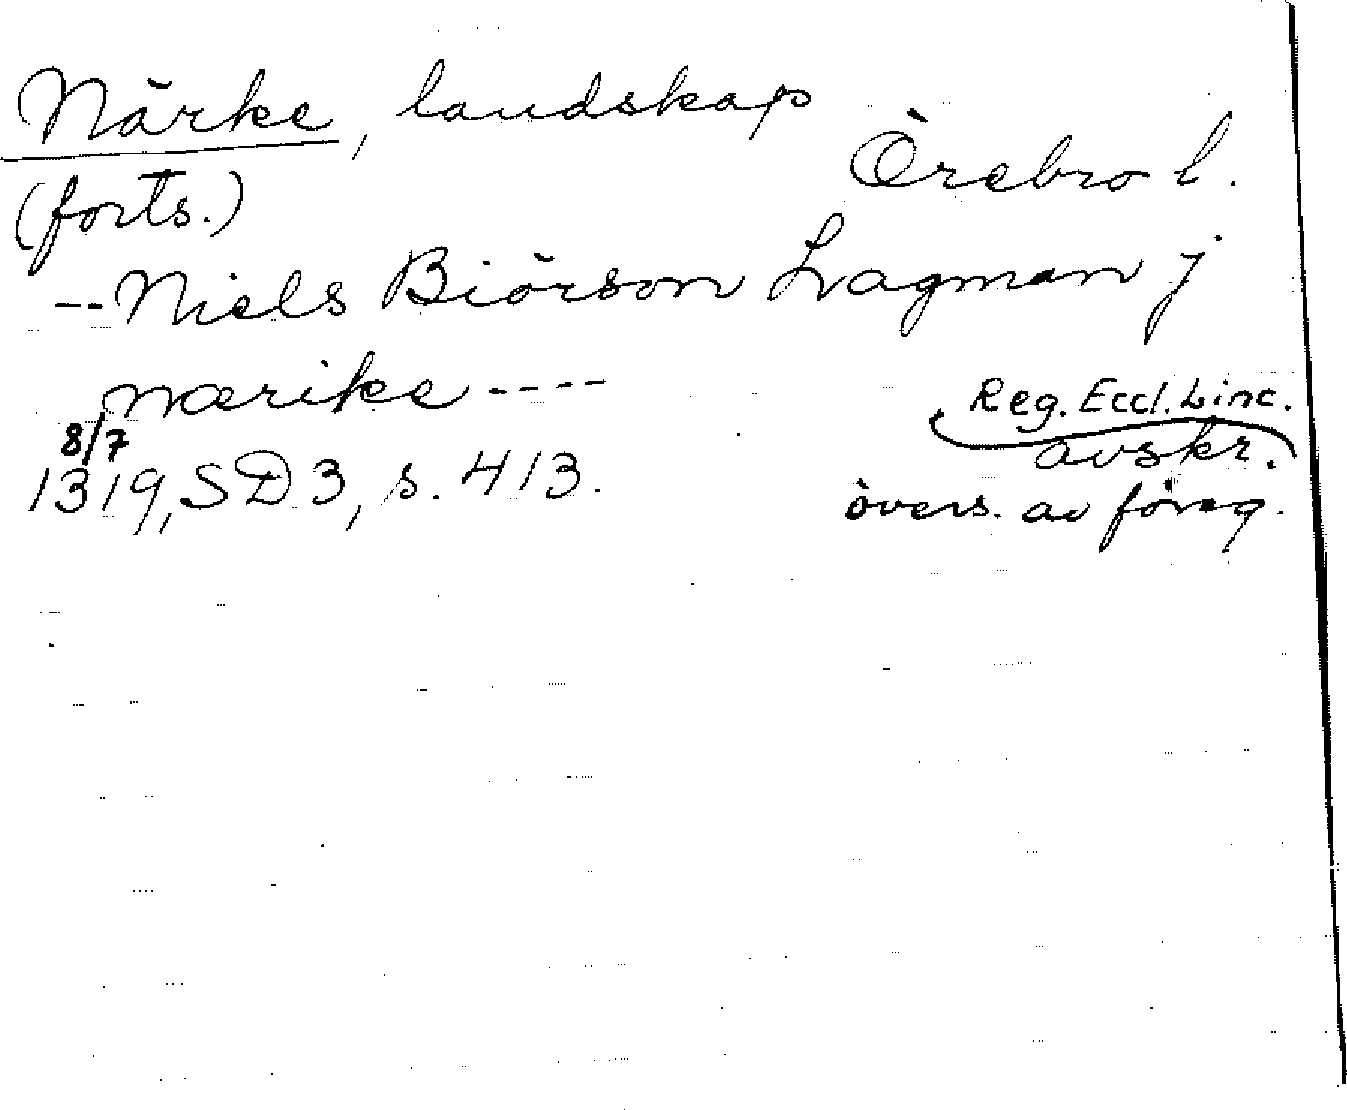 Närke, landskap
Örebro l.
(forts.)
-- Niels Biörson Lagman j
nærike ----
Reg. Eccl. Linc.
8/7
avskr.
1319, SD 3, s. 413.
övers. av föreg.